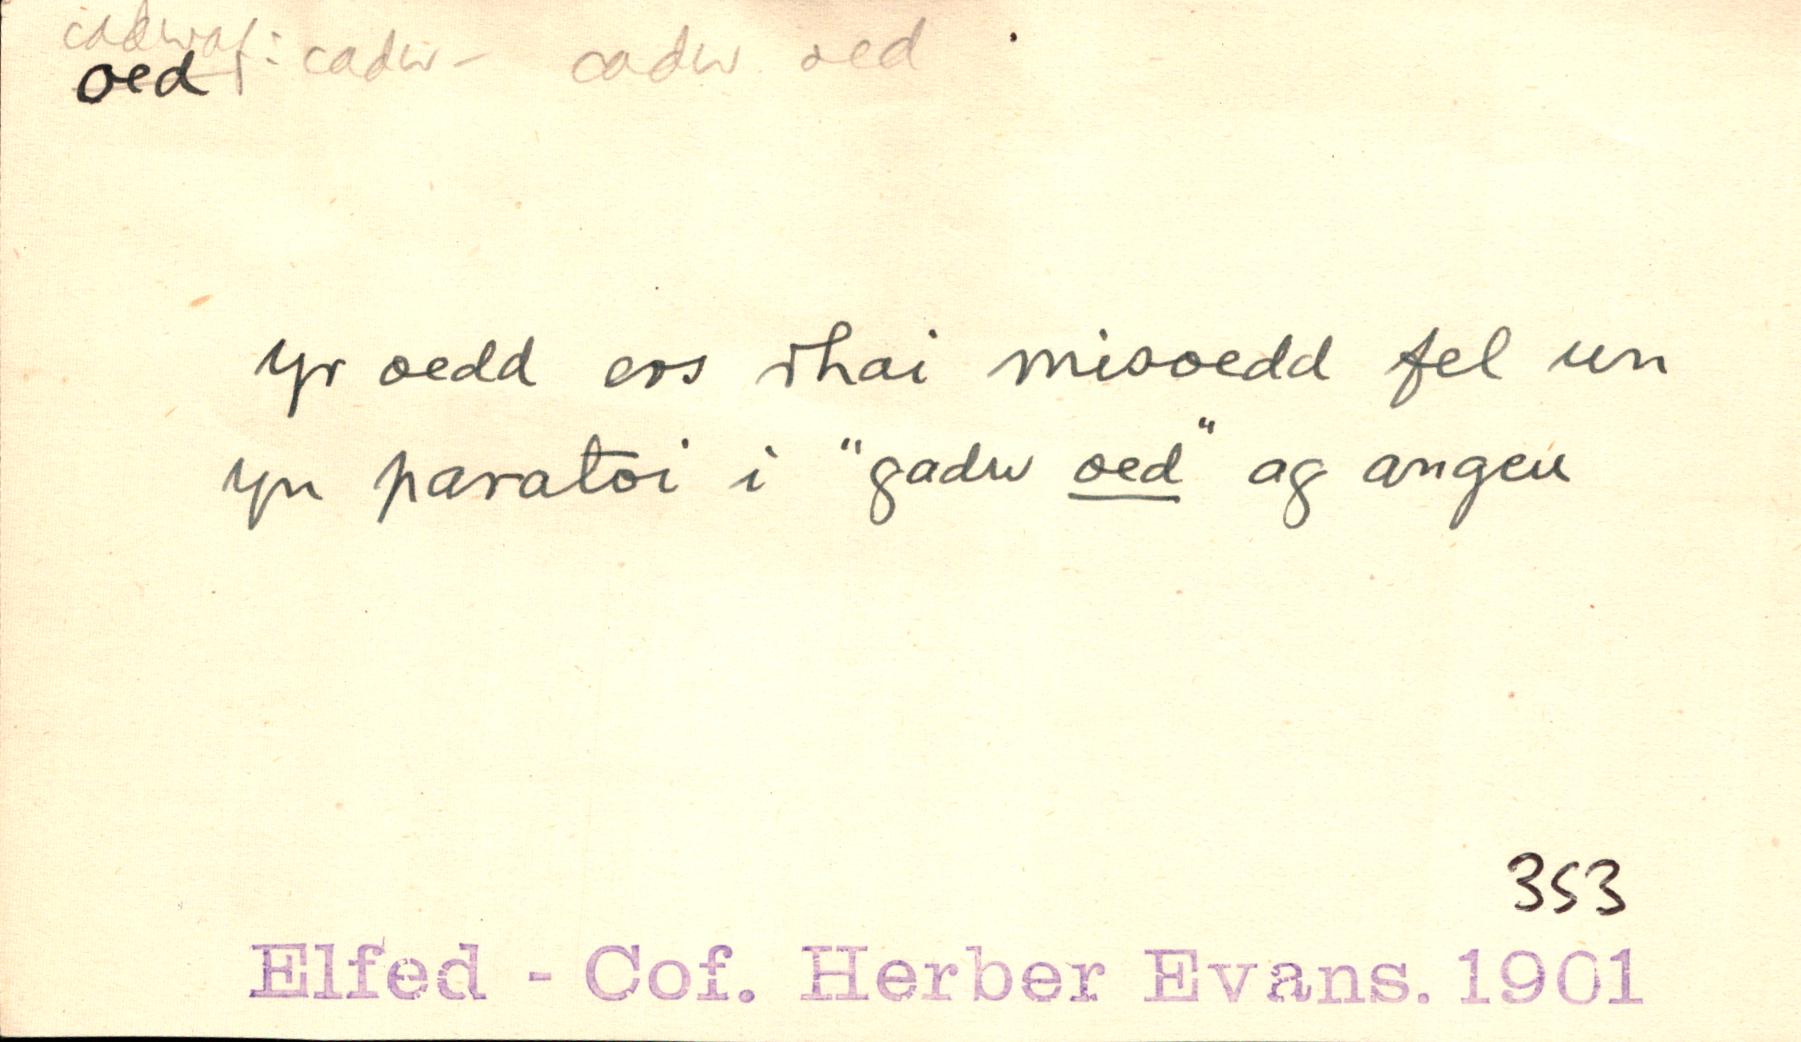 cadwaf: cadw - cadw oed
oed
yr oedd ers rhai misoedd fel un
yn paratoi i "gadw oed" ag angeu
353
Elfed - Cof. Herber Evans. 1901